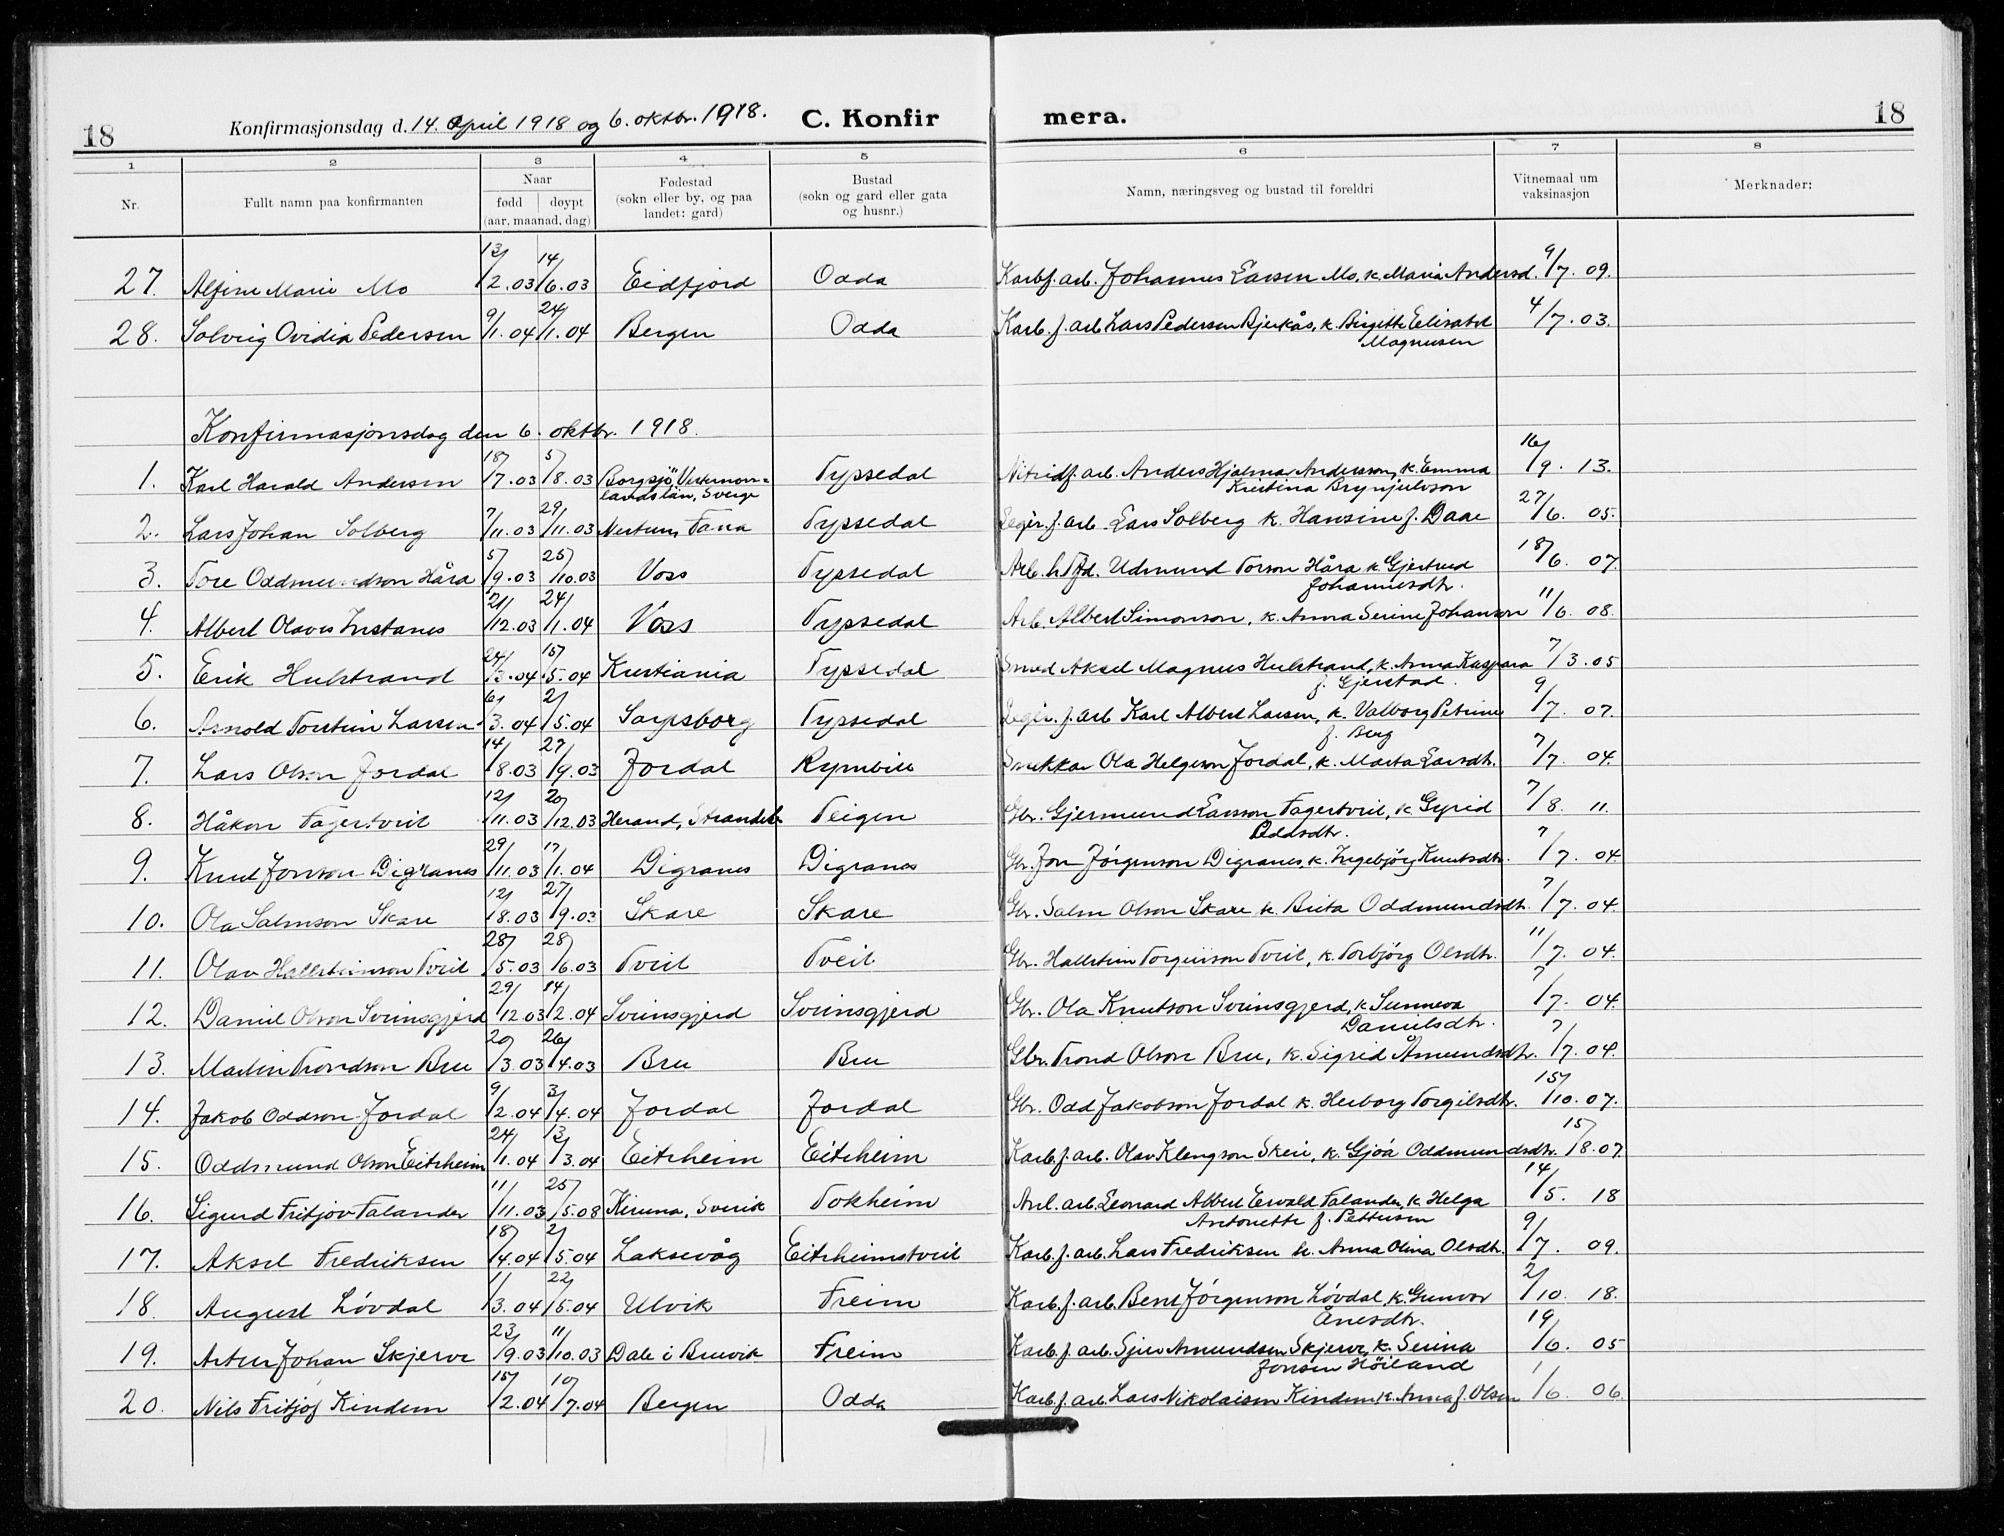 18 Konfirmasjonsdag d. 14. April 1918 og 6. oktbr. 1918. C. Konfir mera. 18
1 2 3 4 5 6 7 8
Nr. Fullt namn paa konfirmanten Naar fødd døypt (aar, maanad, dag) Fødestad (sokn eller by, og paa landet: gard) Bustad (sokn og gard eller gata og husnr.) Namn, næringsveg og bustad til foreldri Vitnemaal um vaksinasjon Merknader:
27. Alfine Marie Mo 13/2.03 14/6.03 Eidfjord Odda Karbf. arb. Johannes Larsen Mo, k. Maria Andersd. 9/7. 09.
28. Solveig Ovidia Pedersen 9/1.04 24/1.04 Bergen Odda Karb. f. arb. Lars Pedersen Bjerkås, k. Birgitte Elisabet Magnusen 4/7. 03.
Konfirmasjonsdag den 6. oktbr. 1918.
1. Karl Harald Andersen 18/7.03 5/8.03 Borgsjö, Vesternorrlandslän, Sverge Tyssedal Nitridf. arb. Anders Hjalmar Andersson, k. Emma Kristina Brynjulvson 16/9. 13.
2. Lars Johan Solberg 7/11.03 29/11.03 Nestun, Fana Tyssedal Legér. f. arb. Lars Solberg k. Hansine f. Daae 27/6. 05.
3. Tore Oddmundson Håra 5/9.03 25/10.03 Voss Tyssedal Arb. Udmund Torson Håra k. Gjertrud Johannesdtr. 18/6. 07.
4. Albert Olaves Instanes 21/12.03 24/1.04 Voss Tyssedal Arb. Albert Simonson, k. Anna Serine Johanson 11/6. 08.
5. Erik Hulstrand 15/5.04 Kristiania Tyssedal Smed Aksel Magnus Hulstrand, k. Anna Kaspara f. Gjerstad. 7/3. 05
6. Arnold Torstein Larsen 6/3.04 2/5.04 Sarpsborg Tyssedal Legér. f. arb. Karl Albert Larsen, k. Valborg Petrine f. Berg 9/7. 07.
7. Lars Olson Jordal 14/8.03 27/9.03 Jordal Rymbill Snikkar Ola Helgeson Jordal, k. Marta Larsdtr. 7/7. 04.
8. Håkon Fagertveit 12/11.03 20/12.03 Herand, Strandeb. Teigen Gbr. Gjermund Larsson Fagertveit, k. Gyrid Peddsdtr. 7/8. 11.
9. Knud Jonson Digranes 29/11.03 17/1.04 Digranes Digranes Gbr. Jon Jörgenson Digranes, k. Ingebjörg Knutsdtr. 7/7. 04
10. Ola Salmson Skare 12/8.03 27/9.03 Skare Skare Gbr. Salm Olson Skare k. Brita Oddmundsdtr. 7/7. 04.
11. Olav Hallsteinson Tveit 28/5.03 28/6.03 Tveit Tveit Gbr. Hallstein Torgeirson Tveit, k. Torbjörg Olsdtr. 11/7. 04.
12. Daniel Olson Sveinsgjerd 29/12.03 14/2.04 Sveinsgjerd Sveinsgjerd Gbr. Ola Knutson Sveinsgjerd, k. Sunneva Danielsdtr. 7/7. 04.
13. Martin Trondson Bru 20/3.03 26/4.03 Bru Bru Gbr. Trond Olson Bru, k. Sigrid Åmundsdtr. 7/7. 04.
14. Jakob Oddson Jordal 9/2.04 3/4.04 Jordal Jordal Gbr. Odd Jakobson Jordal k. Herborg Torgilsdtr. 15/10. 07.
15. Oddmund Olson Eitrheim 24/1.04 13/3.04 Eitrheim Eitrheim Karb. f. arb. Olav Klengson Skeie, k. Gjöa Oddmundsdtr. 15/8. 07
16. Sigurd Fritjov Falander 11/11.03 25/5.08 Kiruna, Sverik Tokheim Anl. arb. Leonard Albert Ewald Falander, k. Helga Antonette f. Pettersen 14/5. 18
17. Aksel Fredriksen 18/4.04 2/5.04 Laksevåg Eitrheimstveit Karb. f. arb. Lars Fredriksen k. Anna Olina Olsdtr. 9/7. 09.
18. August Lövdal 1/3.04 22/5.04 Ulvik Freim Karb. f. arb. Bent Jörgenson Lövdal, k. Gunvor Ånesdtr. 2/10. 18.
19. Artur Johan Skjerve 23/9.03 11/10.03 Dale i Bruvik Freim Karb. f. arb. Sjur Amundsen Skjerve, k. Serina Jonsen Höiland 19/6. 05
20. Nils Fritjof Kindem 15/2.04 10/7.04 Bergen Odda Karb. f. arb. Lars Nikolaisen Kindem, k. Anna f. Olsen 1/6. 06.